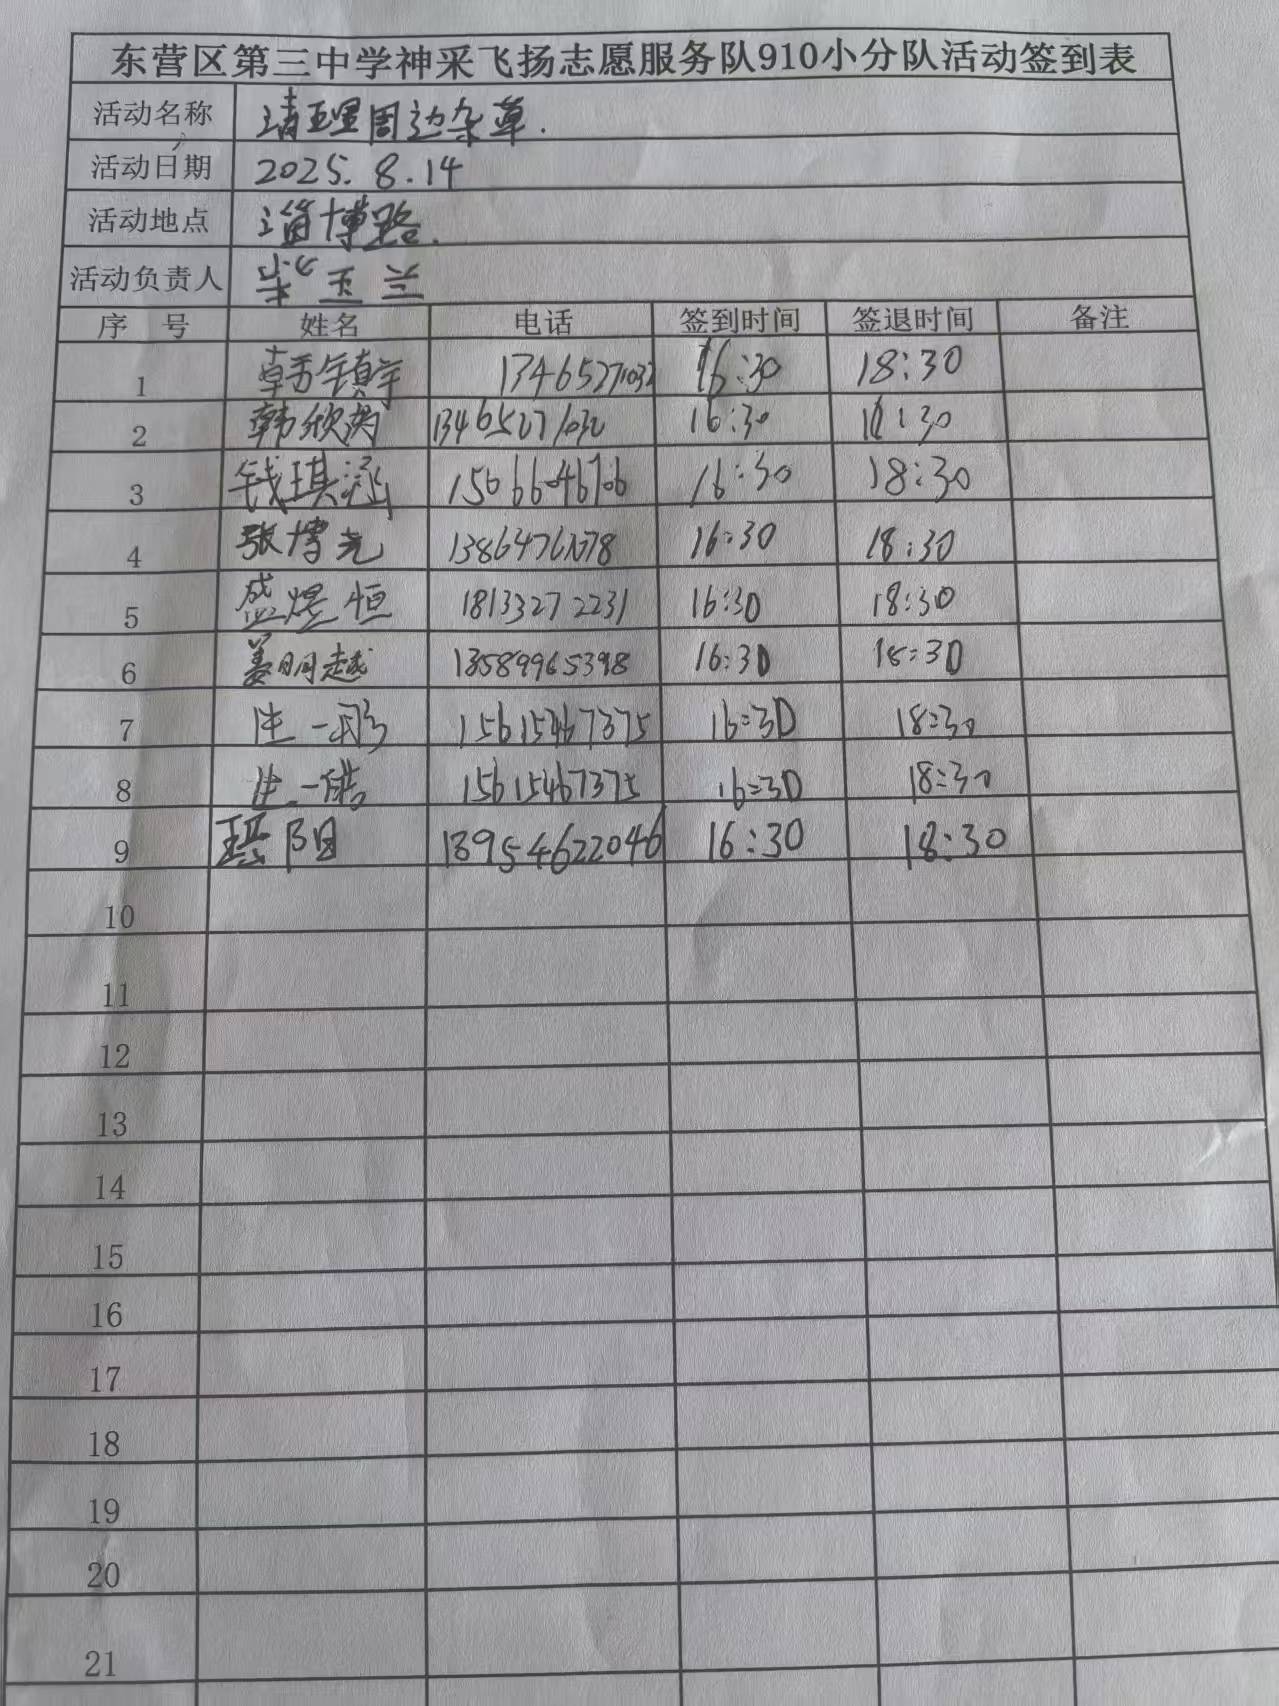 东营区第三中学神采飞扬志愿服务队910小分队活动签到表
活动名称 清理周边杂草.
活动日期 2025.8.14
活动地点 淄博路.
活动负责人 玉兰
序 号 姓名 电话 签到时间 签退时间 备注
1 韩镇宇 13465271032 16:30 18:30
2 韩欣 13465271032 16:30 18:30
3 钱琪涵 16:30 18:30
4 张博尧 16:30 18:30
5 盛煜恒 18133272231 16:30 18:30
6 姜明越 13589965398 16:30 18:30
7 生一 15615467375 16:30 18:30
8 生一 15615467375 16:30 18:30
9 阳 13954622046 16:30 18:30
10
11
12
13
14
15
16
17
18
19
20
21